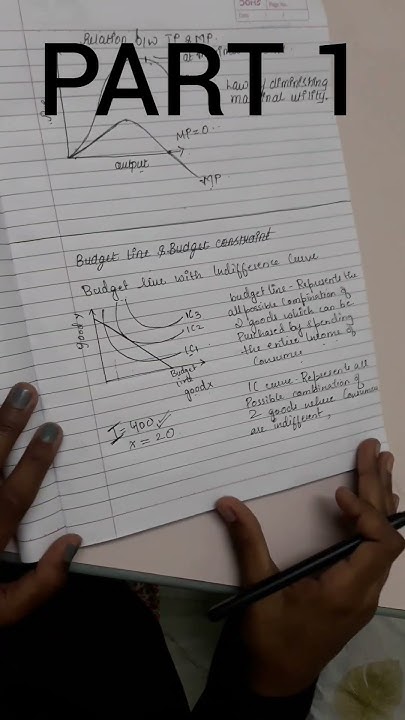 Page No.
Date
Relation b/w TP & MP.
PART 1
Law of diminishing
marginal utility.
MP=0
output
MP
Budget line & Budget constraint
Budget line with Indifference Curve
good y
IC3
IC2
IC1
Budget
line
good x
budget line - Represents the
all possible combination of
2 goods which can be
Purchased by spending
the entire income of
Consumer.
IC curve - Represents all
Possible combination of
2 goods where Consumer
are indifferent,
I = 400 ✓
x = 20